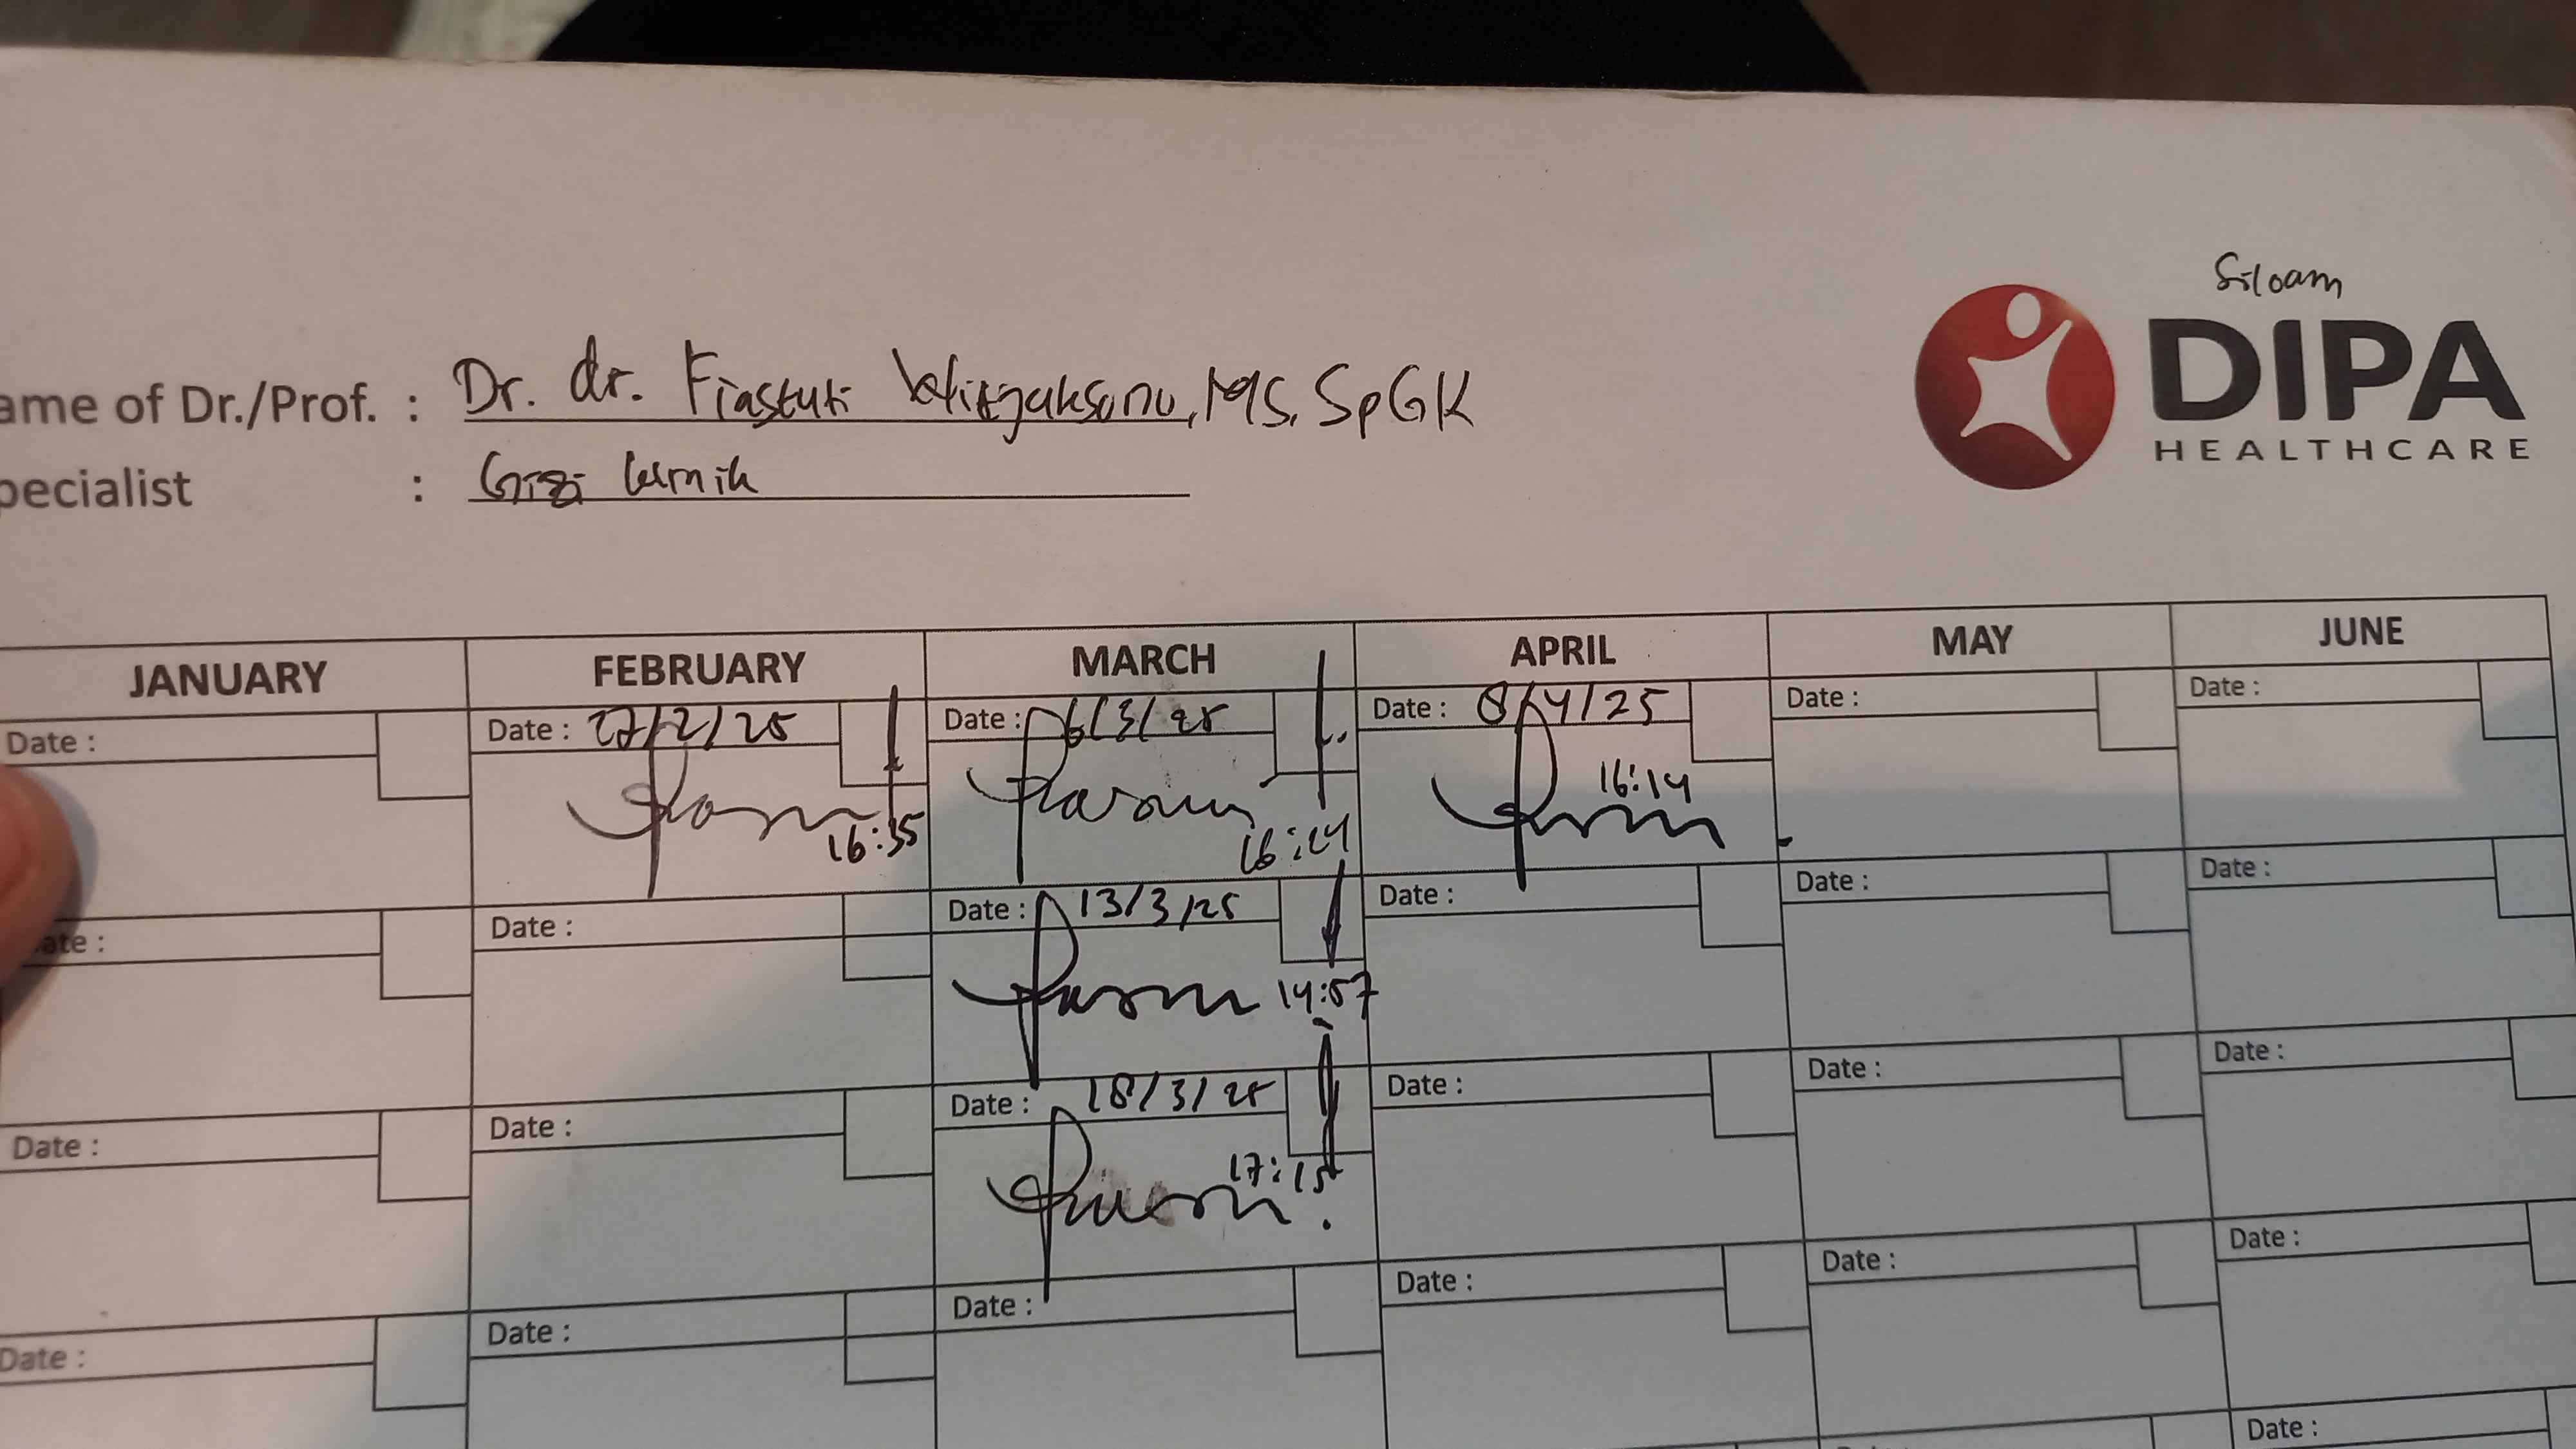 Siloam
DIPA
HEALTHCARE
ame of Dr./Prof. : Dr. dr. Fiastuti Witjaksono, MS, SpGK
pecialist : Gizi klinik
JANUARY FEBRUARY MARCH APRIL MAY JUNE
Date : Date : 27/2/25 Date : 6/3/25 Date : 8/4/25 Date : Date :
16:35 16:24 16:14
ate : Date : Date : 13/3/25 Date : Date : Date :
14:57
Date : Date : Date : 18/3/25 Date : Date : Date :
17:15
Date : Date : Date : Date : Date : Date :
Date :